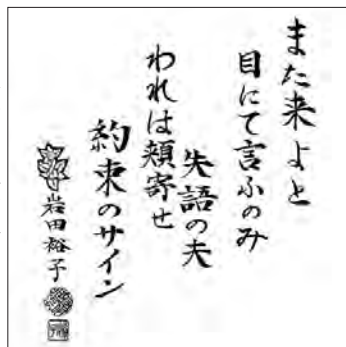 また来よと
目にて言ふのみ
失語の夫
われは頬寄せ
約束のサイン
岩田裕子